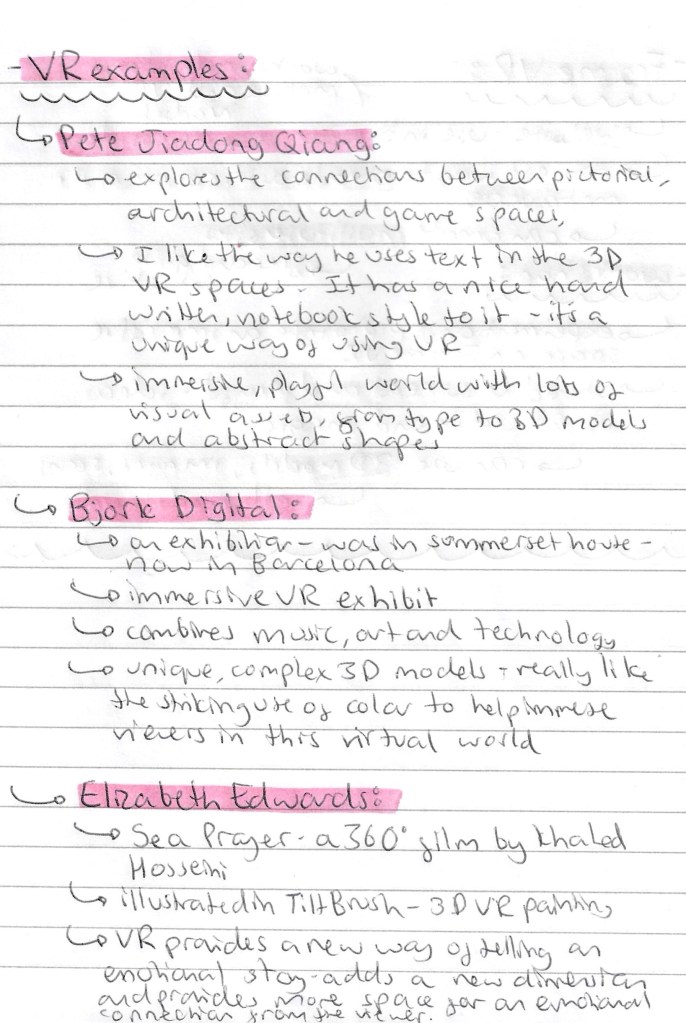 - VR examples:
↳ Pete Jiadong Qiang:
↳ explores the connections between pictorial,
architectural and game spaces,
↳ I like the way he uses text in the 3D
VR spaces - It has a nice hand
written, notebook style to it - it's a
unique way of using VR
↳ immersive, playful world with lots of
visual assets, from type to 3D models
and abstract shapes
↳ Bjork Digital:
↳ an exhibition - was in summerset house -
now in Barcelona
↳ immersive VR exhibit
↳ combines music, art and technology
↳ unique, complex 3D models - really like
the striking use of color to help immerse
viewers in this virtual world
↳ Elizabeth Edwards:
↳ Sea Prayer - a 360° film by Khaled
Hosseini
↳ illustrated in Tilt Brush - 3D VR painting
↳ VR provides a new way of telling an
emotional story - adds a new dimension
and provides more space for an emotional
connection from the viewer.